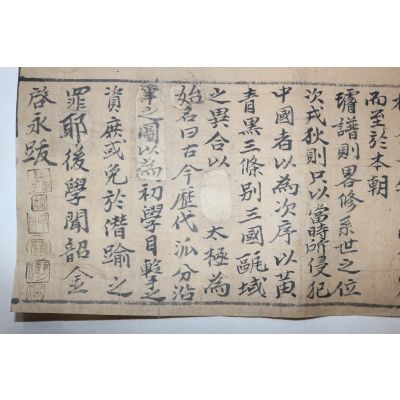 而至於本朝
璿譜則畧修系世之位
次戎狄則只以當時所侵犯
中國者以為次序以黃
青黑三條別三國甌域
之異合以 太極為
始名曰古今歷代泒分沿
革之圖以為初學目擊之
資庶或免於僭踰之
罪耶後學聞韶金
啓永跋